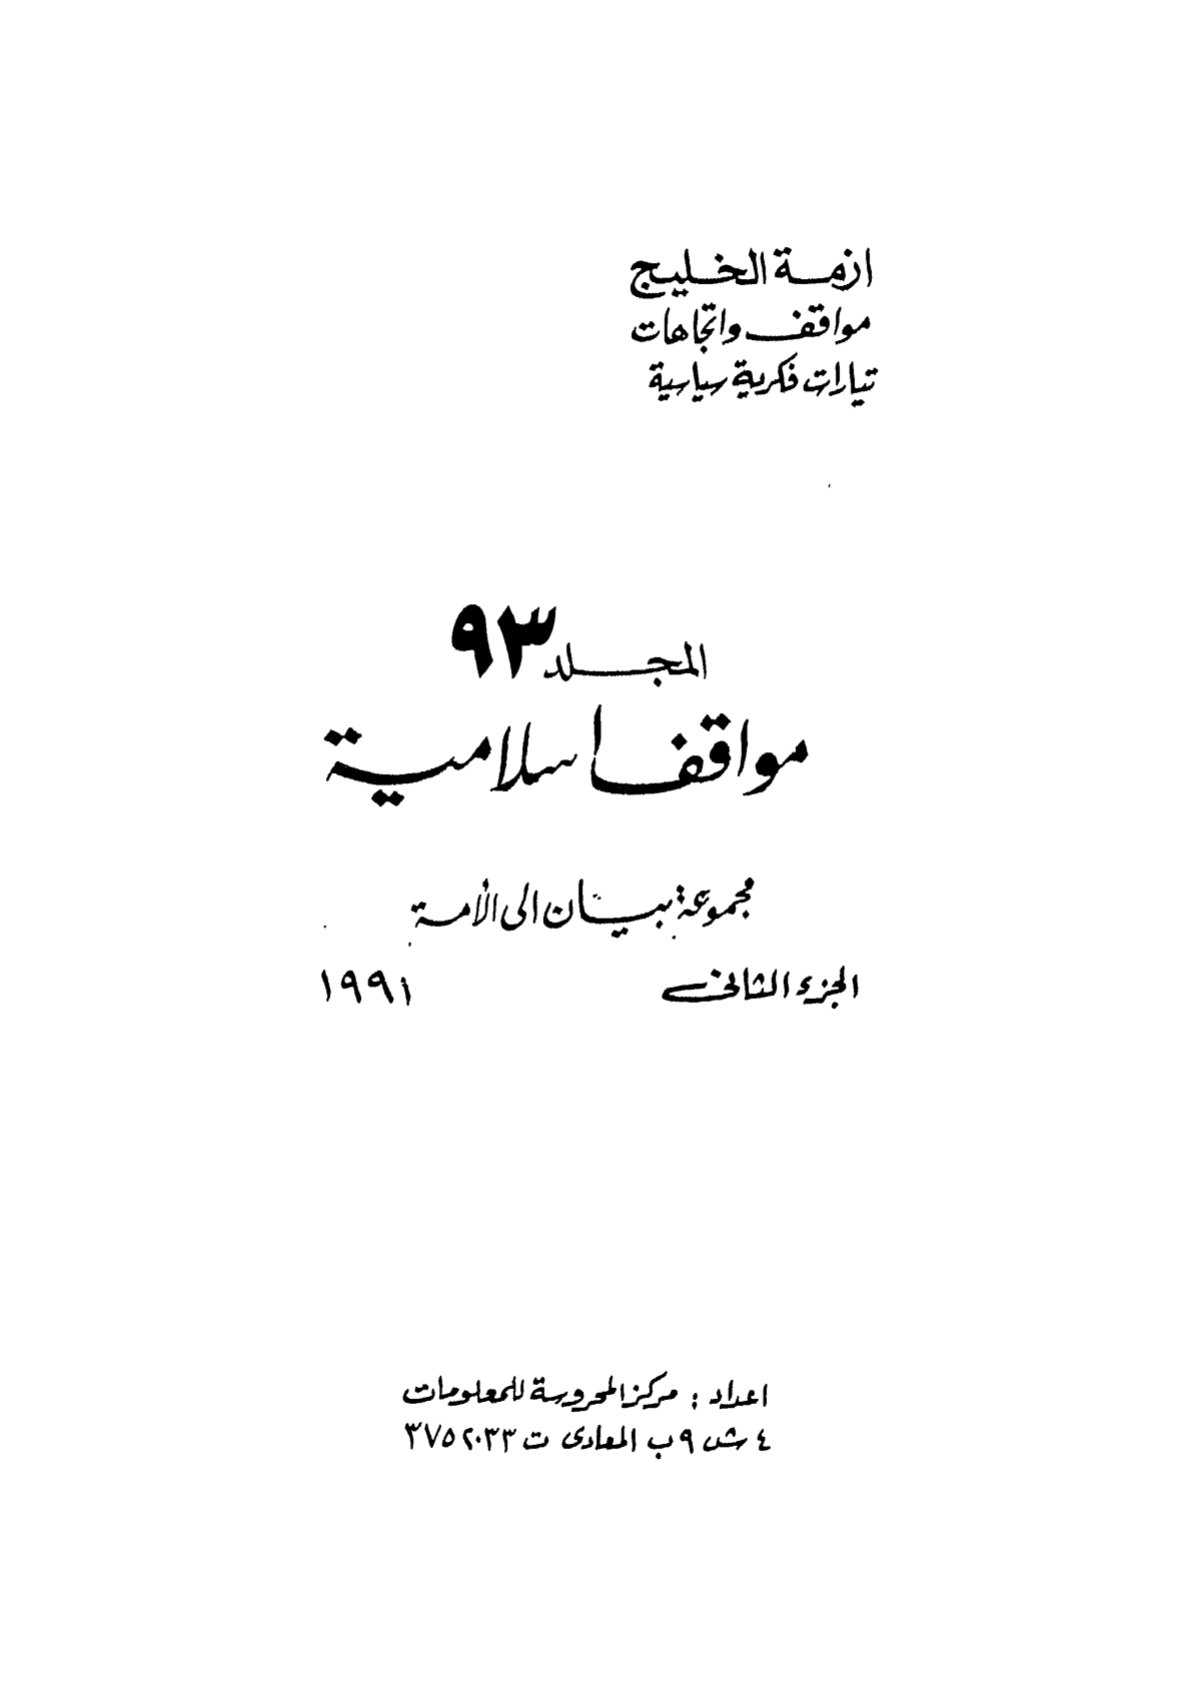 ازمة الخليج
مواقف واتجاهات
تيارات فكرية سياسية
المجلد ٩٣
مواقف اسلامية
مجموعة بيان الى الأمة
الجزء الثانى ١٩٩١
اعداد : مركز المحروسة للمعلومات
٤ ش ٩ ب المعادى ت ٣٧٥٢٠٣٣